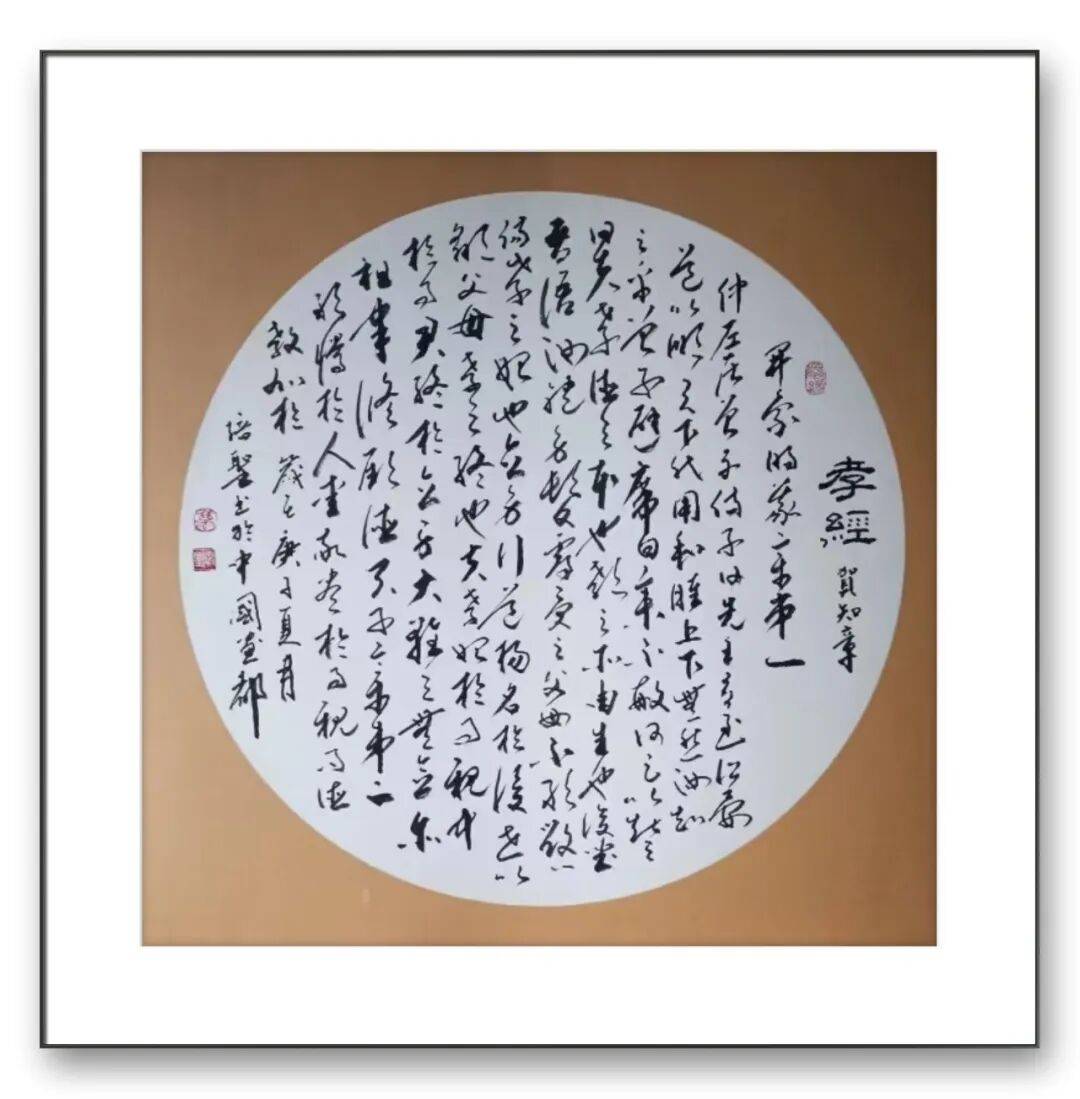 孝經 賀知章
开宗明義章第一
仲尼居曾子侍子曰先王有至德要
道以順天下民用和睦上下無怨汝知
之乎曾子避席曰參不敏何足以知之
曰夫孝德之本也教之所由生也復坐
吾語汝體身髮膚受之父母不敢毀
傷孝之始也立身行道揚名於後世以
顯父母孝之終也夫孝始於事親中
於事君終於立身大雅云無念爾
祖聿脩厥德天子章第二
敢慢於人愛敬盡於事親而德
教加於 歲在庚子夏月
培聖書於中國畫都